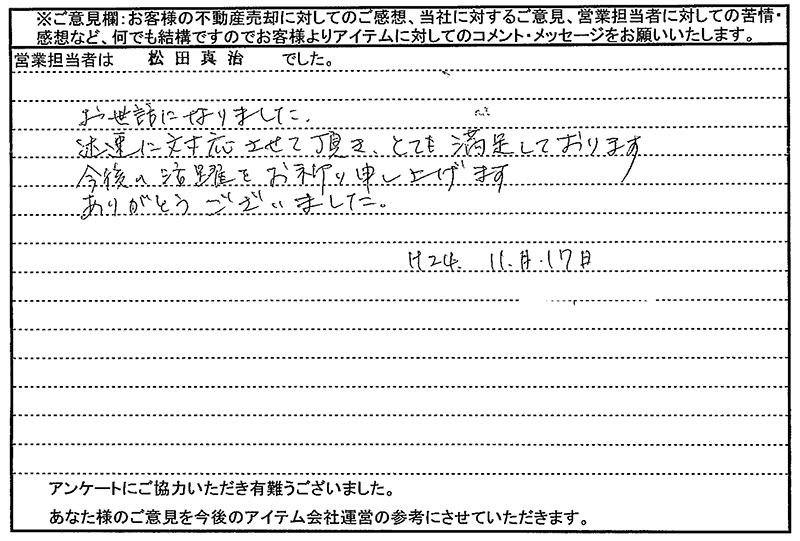 ※ご意見欄:お客様の不動産売却に対してのご感想、当社に対するご意見、営業担当者に対しての苦情・
感想など、何でも結構ですのでお客様よりアイテムに対してのコメント・メッセージをお願いいたします。
営業担当者は 松田真治 でした。
お世話になりました。
迅速に対応させて頂き、とても満足しております
今後の活躍をお祈り申し上げます
ありがとうございました。
H24. 11.月.17日
アンケートにご協力いただき有難うございました。
あなた様のご意見を今後のアイテム会社運営の参考にさせていただきます。